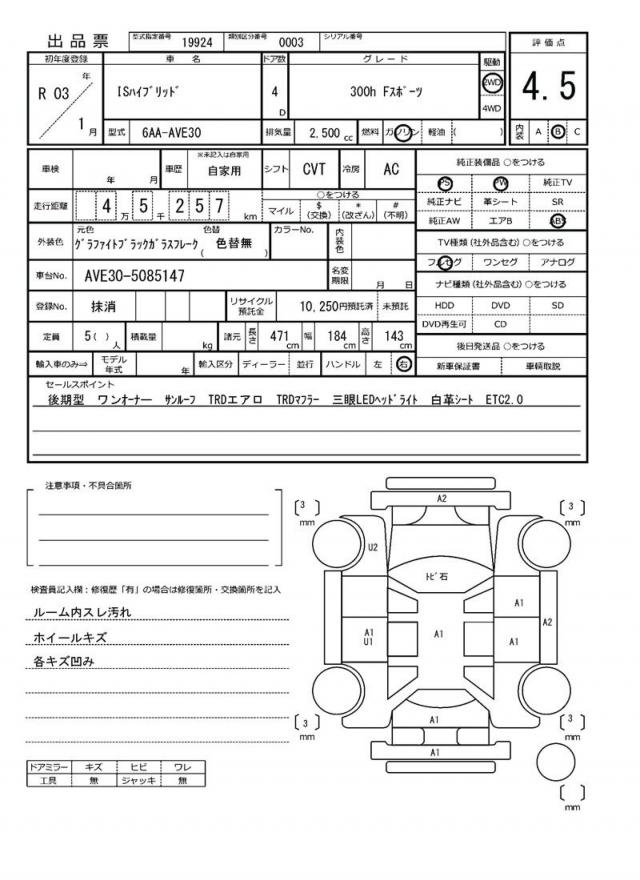 出品票 型式指定番号 19924 類別区分番号 0003 シリアル番号
評価点
4.5
内装 A B C
初年度登録 車名 ドア数 グレード 駆動
R 03 年 1 月
ISハイブリッド 4 D 300h Fスポーツ 2WD
4WD
型式 6AA-AVE30 排気量 2,500 cc 燃料 ガソリン 軽油 ( )
車検 年 月 車歴 ※未記入は自家用 自家用 シフト CVT 冷房 AC
走行距離 4 万 5 千 2 5 7 km
○をつける
マイル $(交換) *(改ざん) #(不明)
外装色 元色 グラファイトブラックガラスフレーク 色替 ( 色替無 ) カラーNo. 内装色
車台No. AVE30-5085147 名変期限 月 日
登録No. 抹消 リサイクル預託金 10,250円預託済 未預託
定員 5( ) 人 積載量 kg 諸元 長さ 471 cm 幅 184 cm 高さ 143 cm
輸入車のみ⇒ モデル年式 年 輸入区分 ディーラー 並行 ハンドル 左 右
純正装備品 ○をつける
PS PW 純正TV
純正ナビ 革シート SR
純正AW エアB ABS
TV種類(社外品含む)○をつける
フルセグ ワンセグ アナログ
ナビ種類(社外品含む)○をつける
HDD DVD SD
DVD再生可 CD
後日発送品 ○をつける
新車保証書 車輌取説
セールスポイント
後期型 ワンオーナー サンルーフ TRDエアロ TRDマフラー 三眼LEDヘッドライト 白革シート ETC2.0
注意事項・不具合箇所
検査員記入欄:修復歴「有」の場合は修復箇所・交換箇所を記入
ルーム内スレ汚れ
ホイールキズ
各キズ凹み
ドアミラー キズ ヒビ ワレ
工具 無 ジャッキ 無
[ 3 ] mm
A2
[ 3 ] mm
U2
トビ石
A1
A1
U1
A1
A1
A2
A1
[ 3 ] mm
A1
[ 3 ] mm
[ ] mm